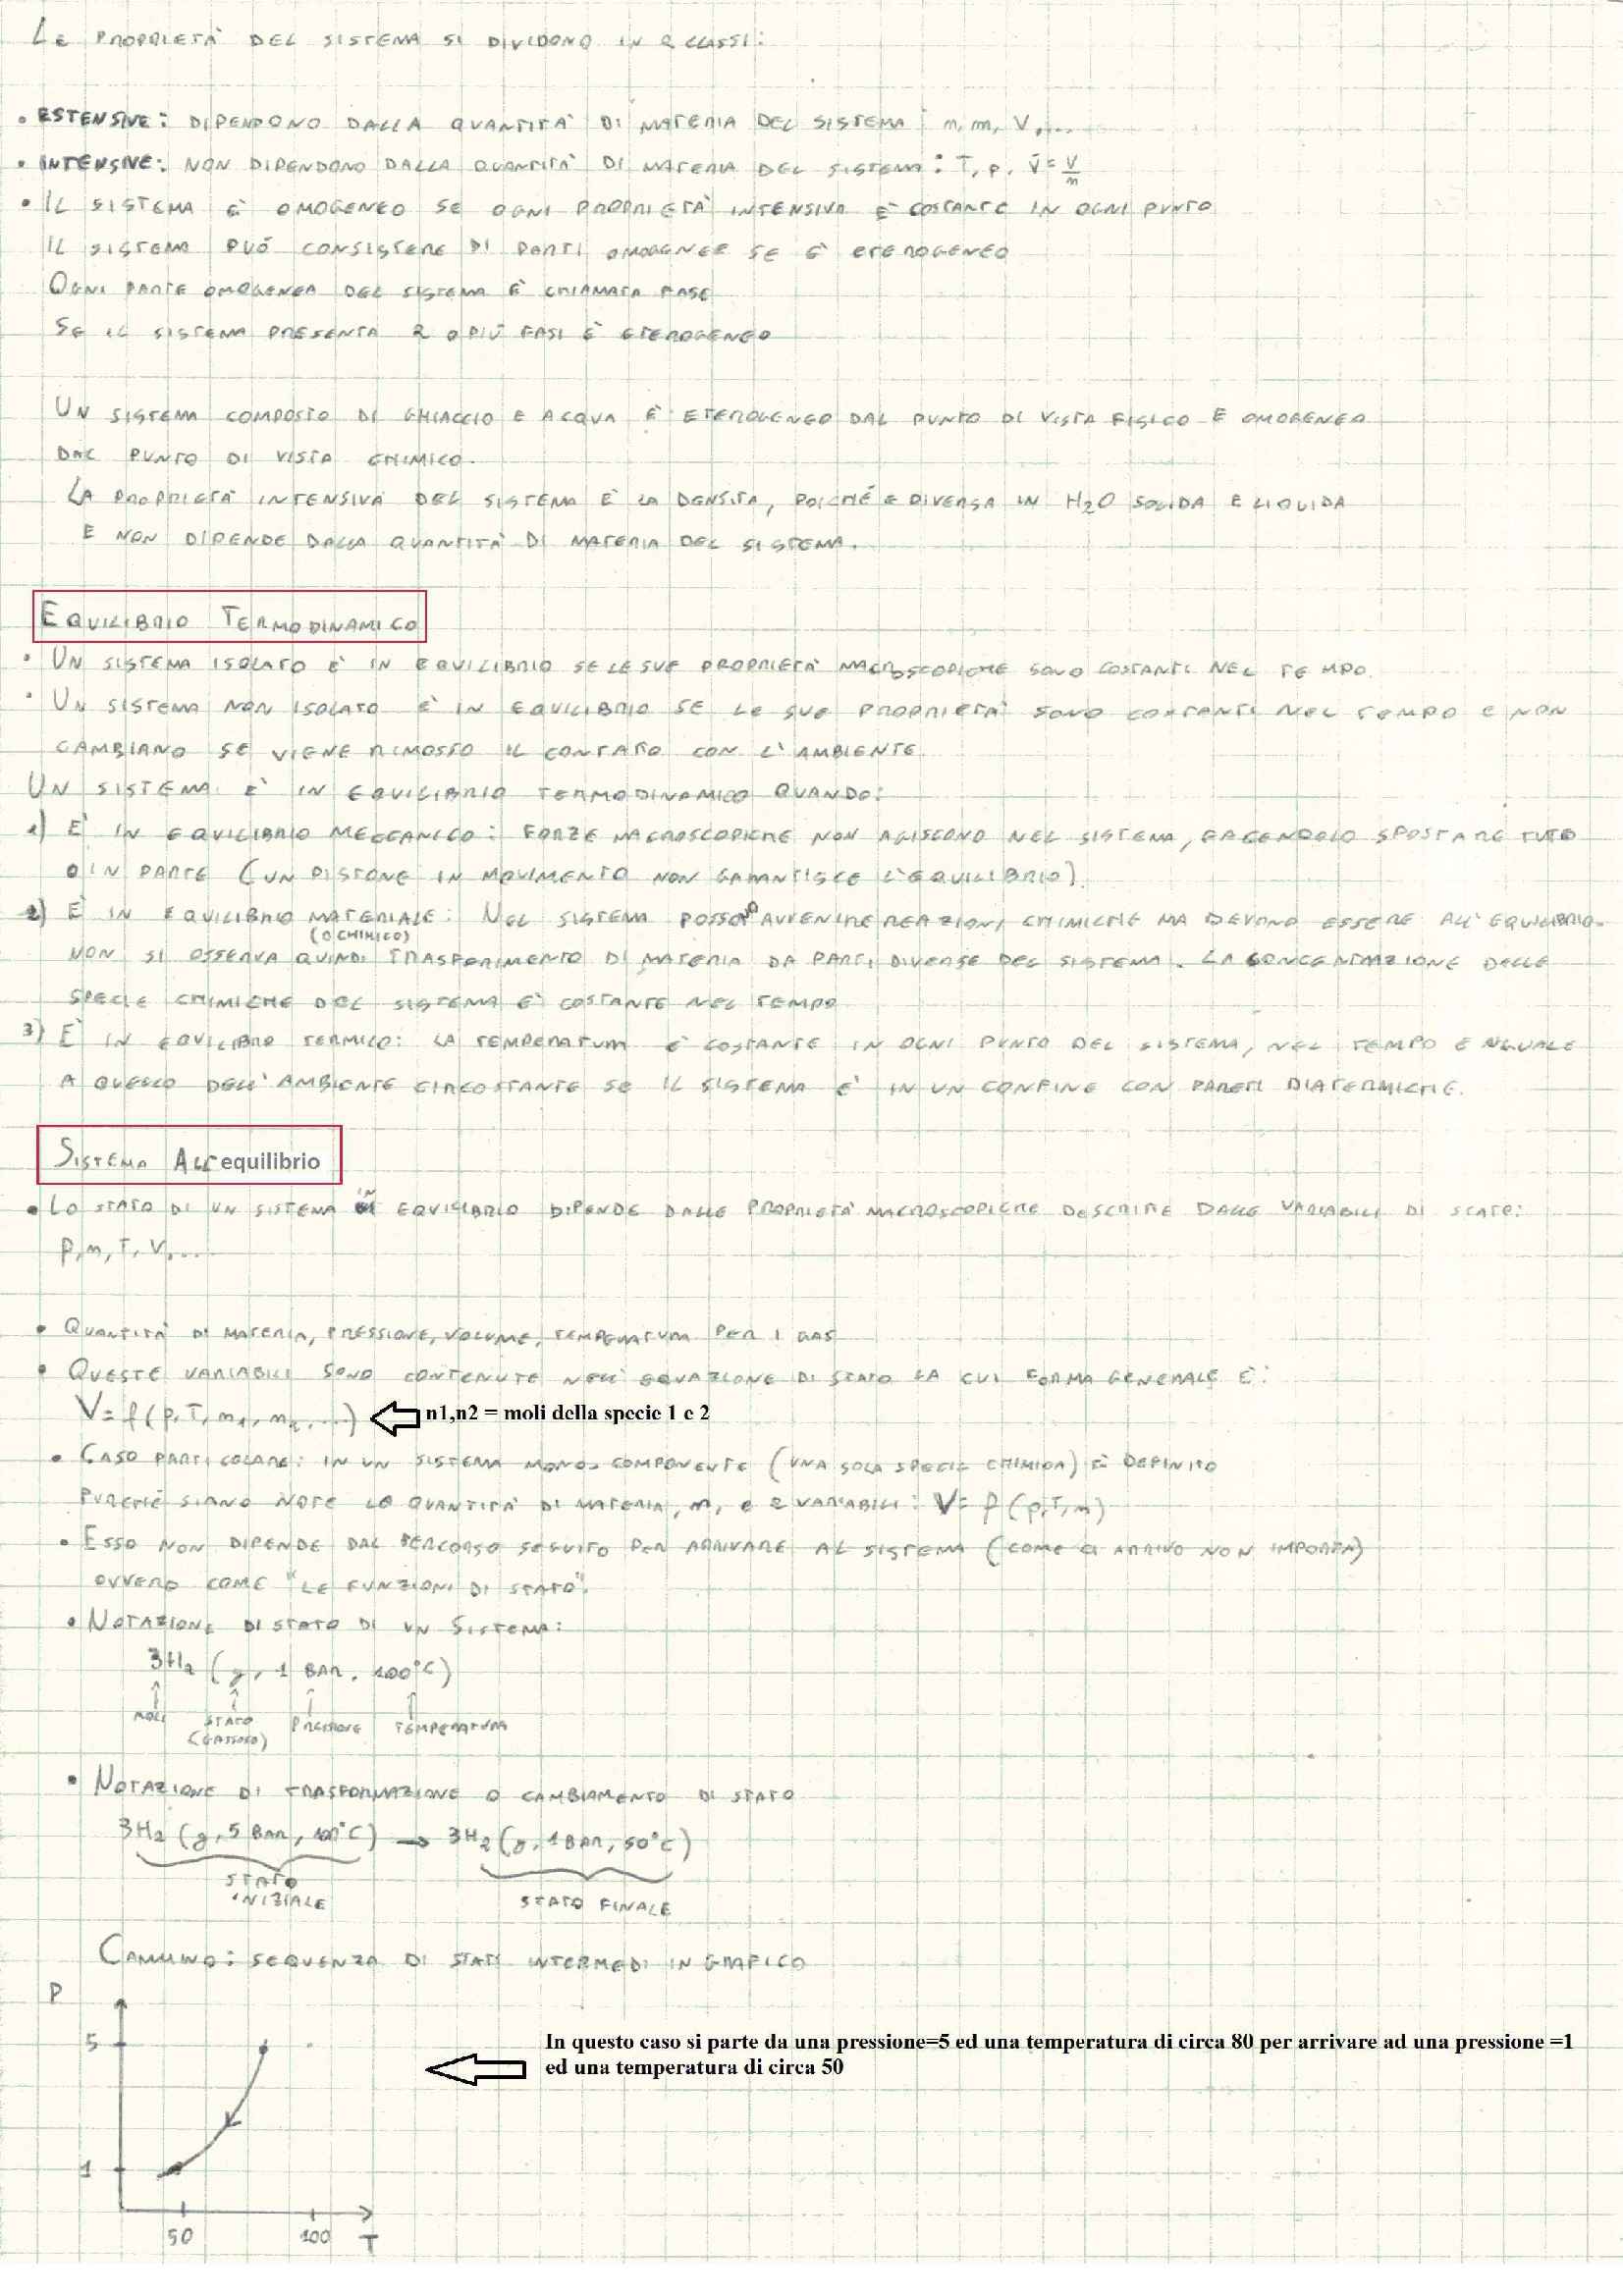 Le proprietà del sistema si dividono in 2 classi:
• ESTENSIVE: dipendono dalla quantità di materia del sistema: n, m, V,....
• INTENSIVE: non dipendono dalla quantità di materia del sistema: T, p, V̄=V/n
• Il sistema è omogeneo se ogni proprietà intensiva è costante in ogni punto
Il sistema può consistere di parti omogenee se è eterogeneo
Ogni parte omogenea del sistema è chiamata fase
Se il sistema presenta 2 o più fasi è eterogeneo
Un sistema composto di ghiaccio e acqua è eterogeneo dal punto di vista fisico e omogeneo
dal punto di vista chimico.
La proprietà intensiva del sistema è la densità, poiché è diversa in H2O solida e liquida
e non dipende dalla quantità di materia del sistema.
Equilibrio Termodinamico
• Un sistema isolato è in equilibrio se le sue proprietà macroscopiche sono costanti nel tempo.
• Un sistema non isolato è in equilibrio se le sue proprietà sono costanti nel tempo e non
cambiano se viene rimosso il contato con l'ambiente.
Un sistema è in equilibrio termodinamico quando:
1) È in equilibrio meccanico: forze macroscopiche non agiscono nel sistema, facendolo spostare tuto
o in parte (un pistone in movimento non garantisce l'equilibrio).
2) È in equilibrio materiale: Nel sistema possono avvenire reazioni chimiche ma devono essere all'equilibrio.
(o chimico)
non si osserva quindi trasferimento di materia da parti diverse del sistema. La concentrazione delle
specie chimiche del sistema è costante nel tempo
3) È in equilibrio termico: la temperatura è costante in ogni punto del sistema, nel tempo e uguale
a quello dell'ambiente circostante se il sistema è in un confine con pareti diatermiche.
Sistema All'equilibrio
• Lo stato di un sistema in equilibrio dipende dalle proprietà macroscopiche descrite dalle variabili di stato:
p, n, T, V,...
• Quantità di materia, pressione, volume, temperatura per i gas
• Queste variabili sono contenute nell'equazione di stato la cui forma generale è:
V= f (p, T, n1, n2, ...) n1,n2 = moli della specie 1 e 2
• Caso particolare: in un sistema mono-componente (una sola specie chimica) è definito
purché siano note la quantità di materia, n, e 2 variabili: V= f (p,T,n)
• Esso non dipende dal percorso seguito per arrivare al sistema (come ci arrivo non importa)
ovvero come "le funzioni di stato".
• Notazione di stato di un Sistema:
3H2 (g, 1 bar, 100°C)
moli stato pressione temperatura
(gassoso)
• Notazione di trasformazione o cambiamento di stato
3H2 (g, 5 bar, 100°C) → 3H2 (g, 1 bar, 50°C)
stato
iniziale
stato finale
Cammino: sequenza di stati intermedi in grafico
P
5
In questo caso si parte da una pressione=5 ed una temperatura di circa 80 per arrivare ad una pressione =1
ed una temperatura di circa 50
1
50 100 T